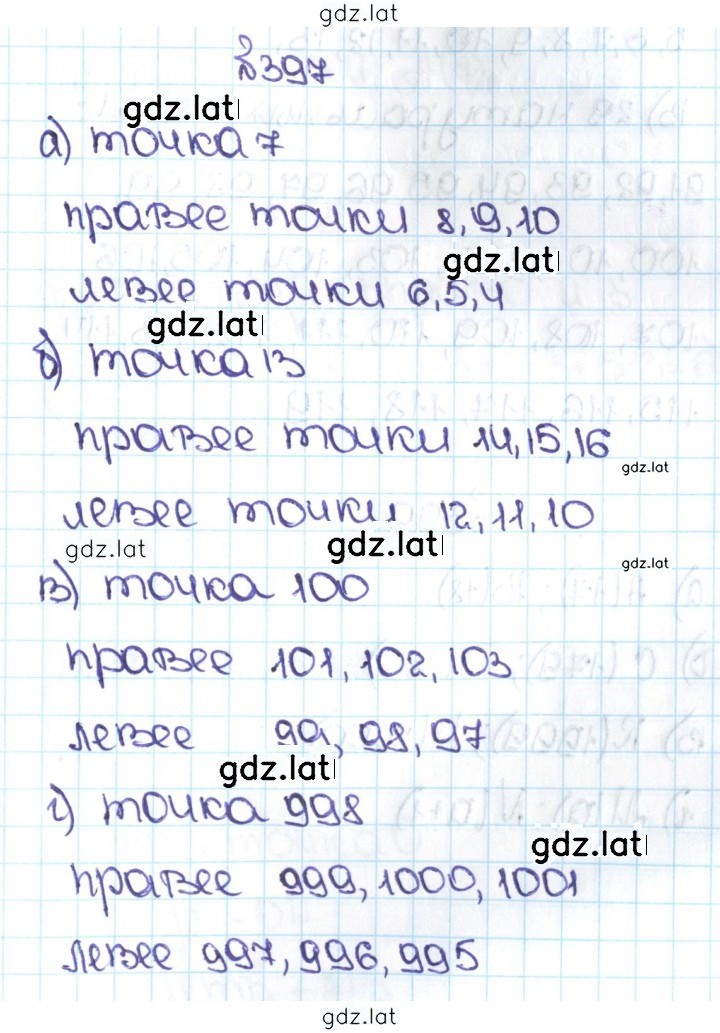 gdz.lat
№397
gdz.lat
а) точка 7
правее точки 8, 9, 10
gdz.lat
левее точки 6, 5, 4
gdz.lat
б) точка 13
правее точки 14, 15, 16
gdz.lat
левее точки 12, 11, 10
gdz.lat
gdz.lat
gdz.lat
в) точка 100
правее 101, 102, 103
левее 99, 98, 97
gdz.lat
г) точка 998
gdz.lat
правее 999, 1000, 1001
левее 997, 996, 995
gdz.lat